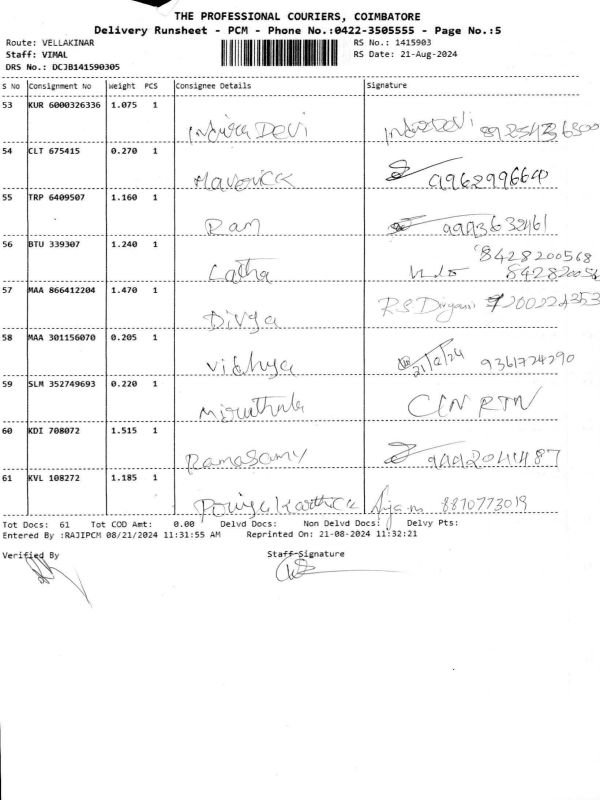 THE PROFESSIONAL COURIERS, COIMBATORE
Delivery Runsheet - PCM - Phone No.:0422-3505555 - Page No.:5
Route: VELLAKINAR RS No.: 1415903
Staff: VIMAL RS Date: 21-Aug-2024
DRS No.: DCJB141590305
S No Consignment No Weight PCS Consignee Details Signature
53 KUR 6000326336 1.075 1
Indira Devi
54 CLT 675415 0.270 1
Maverick 9962999660
55 TRP 6409507 1.160 1
Ram
56 BTU 339307 1.240 1
8428200568
Latha
57 MAA 866412204 1.470 1
Divya
58 MAA 301156070 0.205 1
Vidhya 21/8/24 9361724290
59 SLM 352749693 0.220 1
CCN RTN
60 KDI 708072 1.515 1
Ramasamy
61 KVL 108272 1.185 1
8870773019
Tot Docs: 61 Tot COD Amt: 0.00 Delvd Docs: Non Delvd Docs: Delvy Pts:
Entered By :RAJIPCM 08/21/2024 11:31:55 AM Reprinted On: 21-08-2024 11:32:21
Verified By Staff-Signature